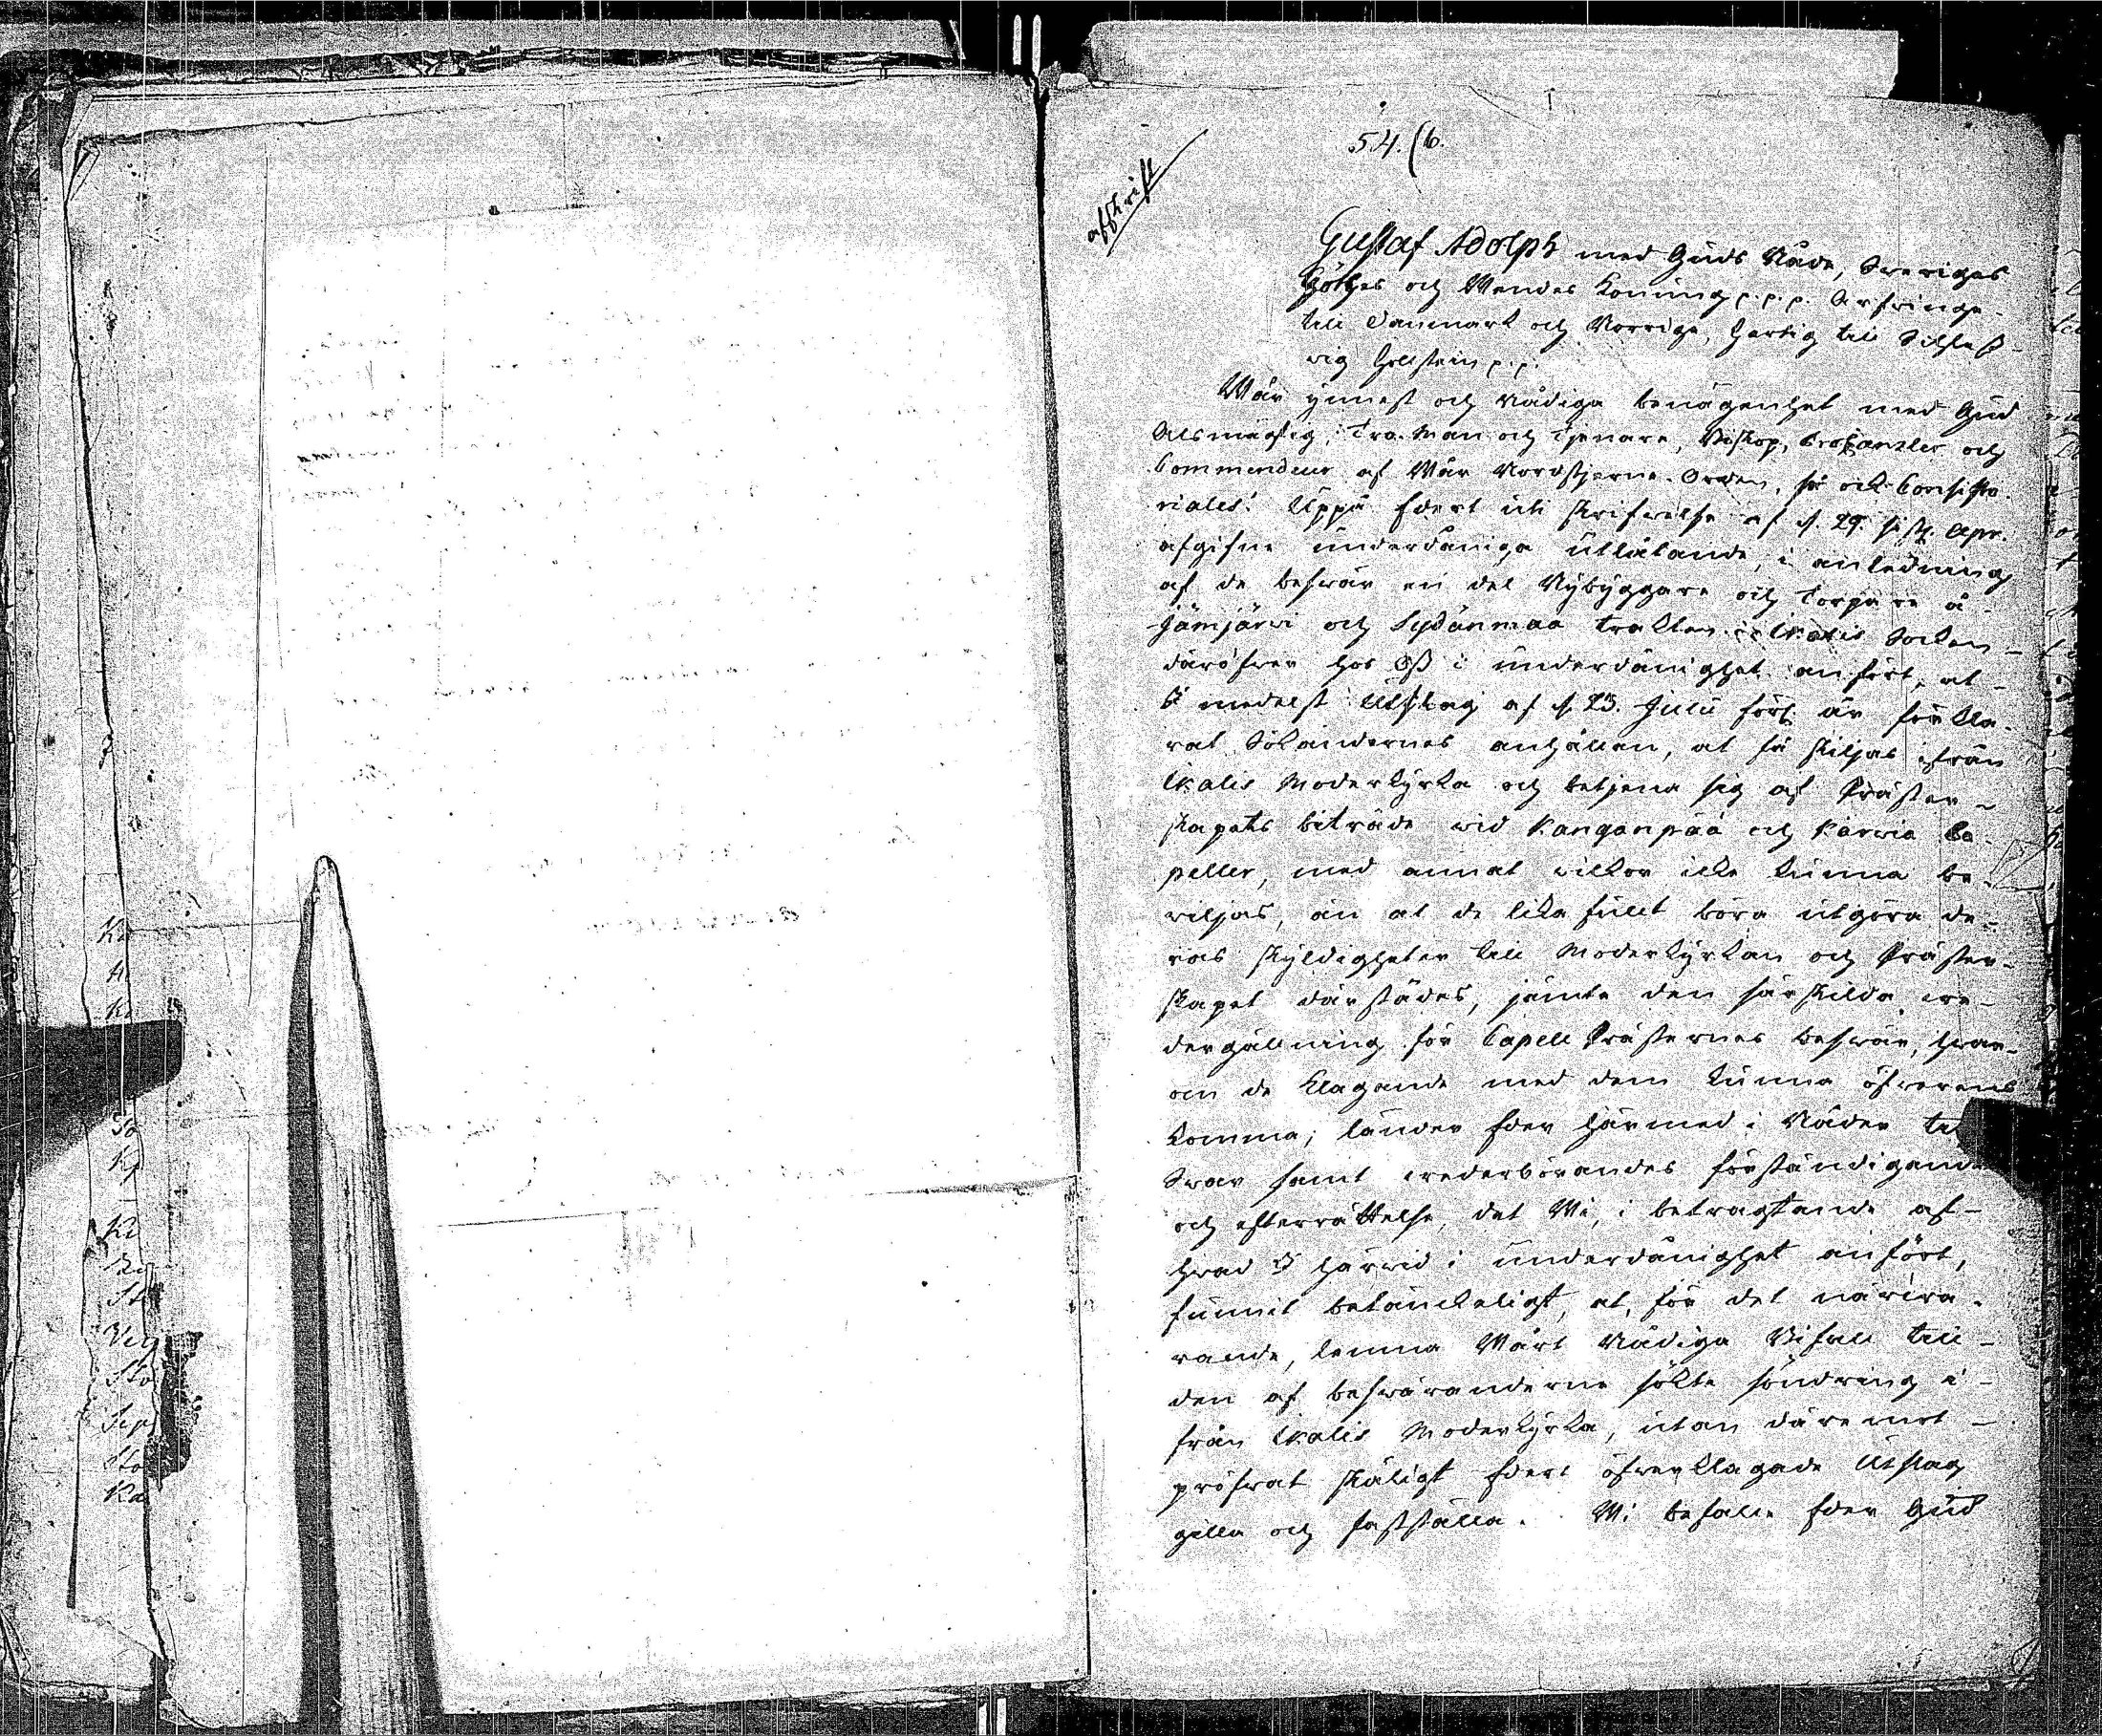 54.(6.
afskrift
Gustaf Adolph med Guds Nåde, Sweriges
Göthes och Wendes Konung p.p.p. Arfwinge
till Danmark och Norrige, Hertig till Schless-
wig Hollstein p.p.
Wår ynnest och nådiga benägenhet med Gud
Alsmägtig, Tro-Man och Tjenare, Biskop, Procanzler och
Commendeur af Wår Nordstjerne-Orden, så ock Consisto-
riales! Uppå Edert uti skrifwelse af d. 29. sistl. Apr.
afgifne underdåniga utlåtande, i anledning
af de beswär en del Nybyggare och Torpare å
Jämjärwi och Sydänmaa trakten i Ikalis Socken
däröfwer hos Oss i underdånighet anfört, at
I medelst Utslag af d. 23. Julii förl. år förkla-
rat Sökandernes anhållan, at få skiljas ifrån
Ikalis Moderkyrka och betjena sig af Präster-
skapets biträde wid Kanganpää och Karwia Ca-
peller, med annat wilkor icke kunna be-
wiljas, än at de lika fullt böra utgöra de-
ras skyldigheter till Moderkyrkan och Präster-
skapet därstädes, jämte den särskilda we-
dergällning för Capell Prästernes beswär, hwar-
om de klagande med dem kunna öfwerens
komma; länder Eder härmed i Nåder till
Swar samt wederbörandes förständigande
och efterrättelse, det Wi, i betragtande af
hwad I härwid i underdånighet anfört,
funnit betänckeligt, at, för det närwa-
rande, lemna Wårt Nådiga Bifall till
den af beswäranderne sökte söndring i-
från Ikalis Moderkyrka, utan däremot
pröfwat skäligt Edert öfwerklagade Utslag
gilla och fastställa. Wi befalle Eder Gud